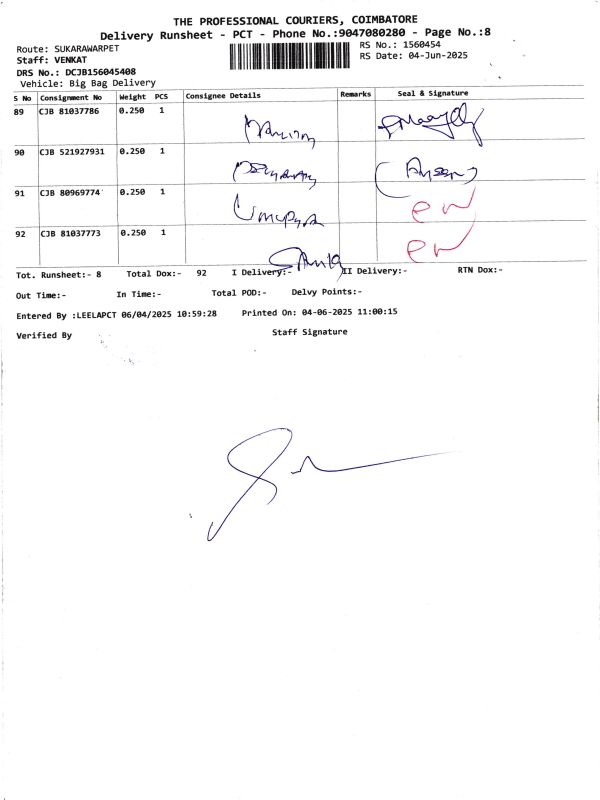 THE PROFESSIONAL COURIERS, COIMBATORE
Delivery Runsheet - PCT - Phone No.:9047080280 - Page No.:8
Route: SUKARAWARPET
RS No.: 1560454
Staff: VENKAT
RS Date: 04-Jun-2025
DRS No.: DCJB156045408
Vehicle: Big Bag Delivery
S No Consignment No Weight PCS Consignee Details Remarks Seal & Signature
89 CJB 81037786 0.250 1
90 CJB 521927931 0.250 1
91 CJB 80969774 0.250 1
92 CJB 81037773 0.250 1
Tot. Runsheet:- 8 Total Dox:- 92 I Delivery:- II Delivery:- RTN Dox:-
Out Time:- In Time:- Total POD:- Delvy Points:-
Entered By :LEELAPCT 06/04/2025 10:59:28 Printed On: 04-06-2025 11:00:15
Verified By Staff Signature